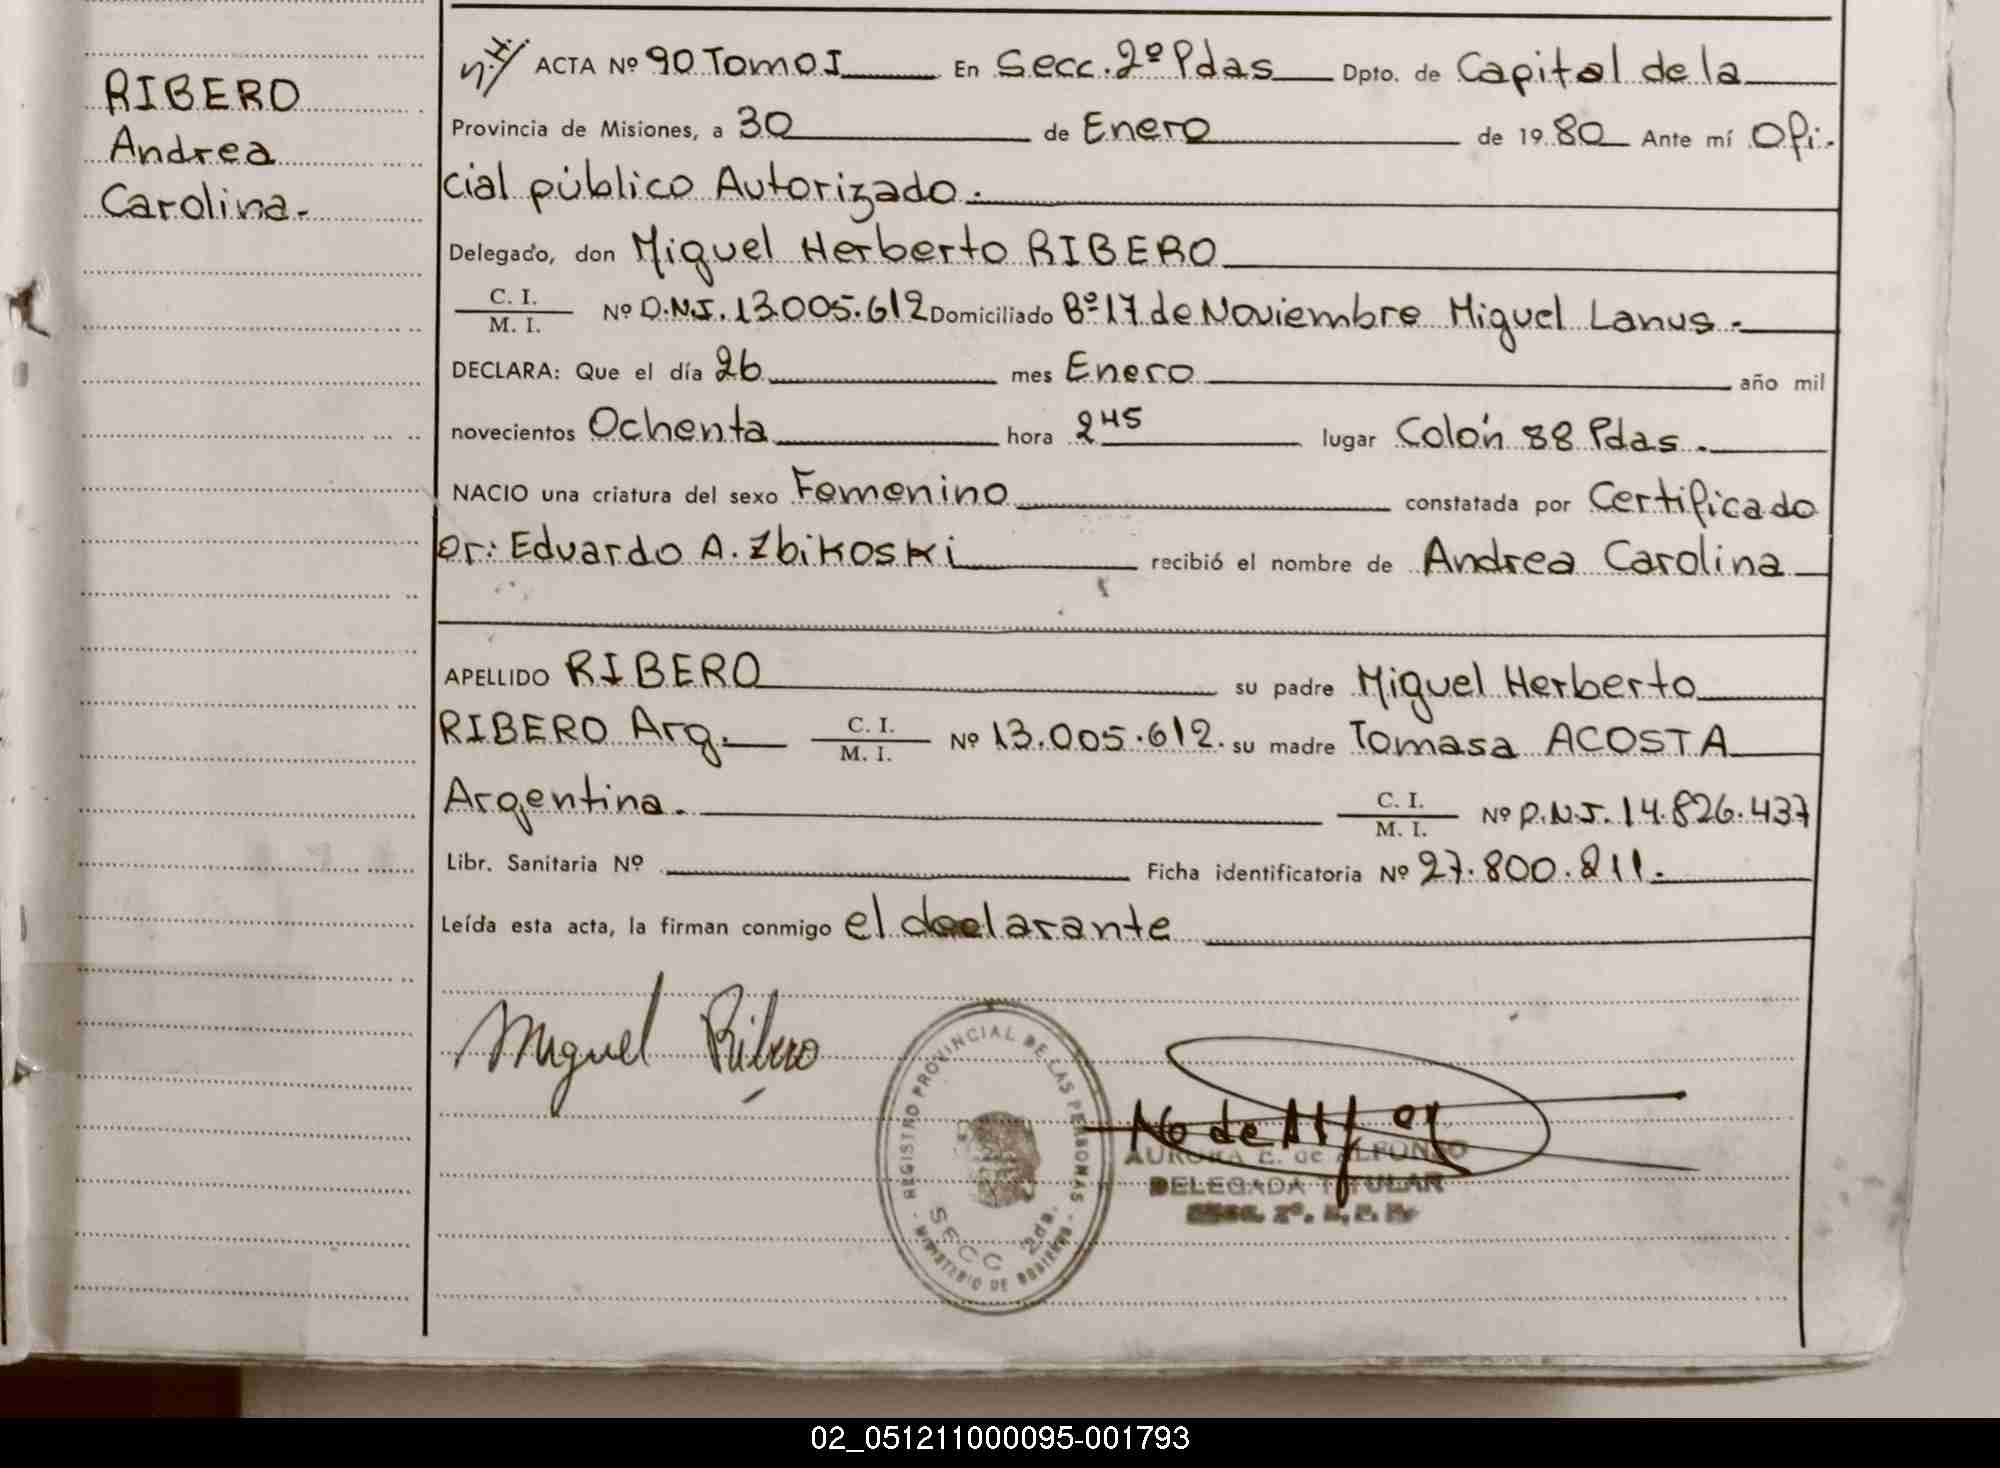 RIBERO
Andrea
Carolina.-
ACTA Nº 90 Tomo I En Secc. 2º Pdas Dpto. de Capital de la
Provincia de Misiones, a 30 de Enero de 1980 Ante mí Ofi-
cial público Autorizado.-
Delegado, don Miguel Herberto RIBERO
C. I.
M. I. Nº D.N.I. 13.005.612 Domiciliado Bº 17 de Noviembre Miguel Lanus.-
DECLARA: Que el día 26 mes Enero año mil
novecientos Ochenta hora 2 45 lugar Colón 88 Pdas.-
NACIO una criatura del sexo Femenino constatada por Certificado
Dr: Eduardo A. Zbikoski recibió el nombre de Andrea Carolina
APELLIDO RIBERO su padre Miguel Herberto
RIBERO Arg. C. I. M. I. Nº 13.005.612. su madre Tomasa ACOSTA
Argentina. C. I. M. I. Nº D.N.I. 14.826.437
Libr. Sanitaria Nº Ficha identificatoria Nº 27.800.211.-
Leída esta acta, la firman conmigo el declarante
Miguel Ribero
REGISTRO PROVINCIAL DE LAS PERSONAS
SECC 2da.
MINISTERIO DE GOBIERNO
AURORA E. de ALFONSO
DELEGADA TITULAR
02_051211000095-001793